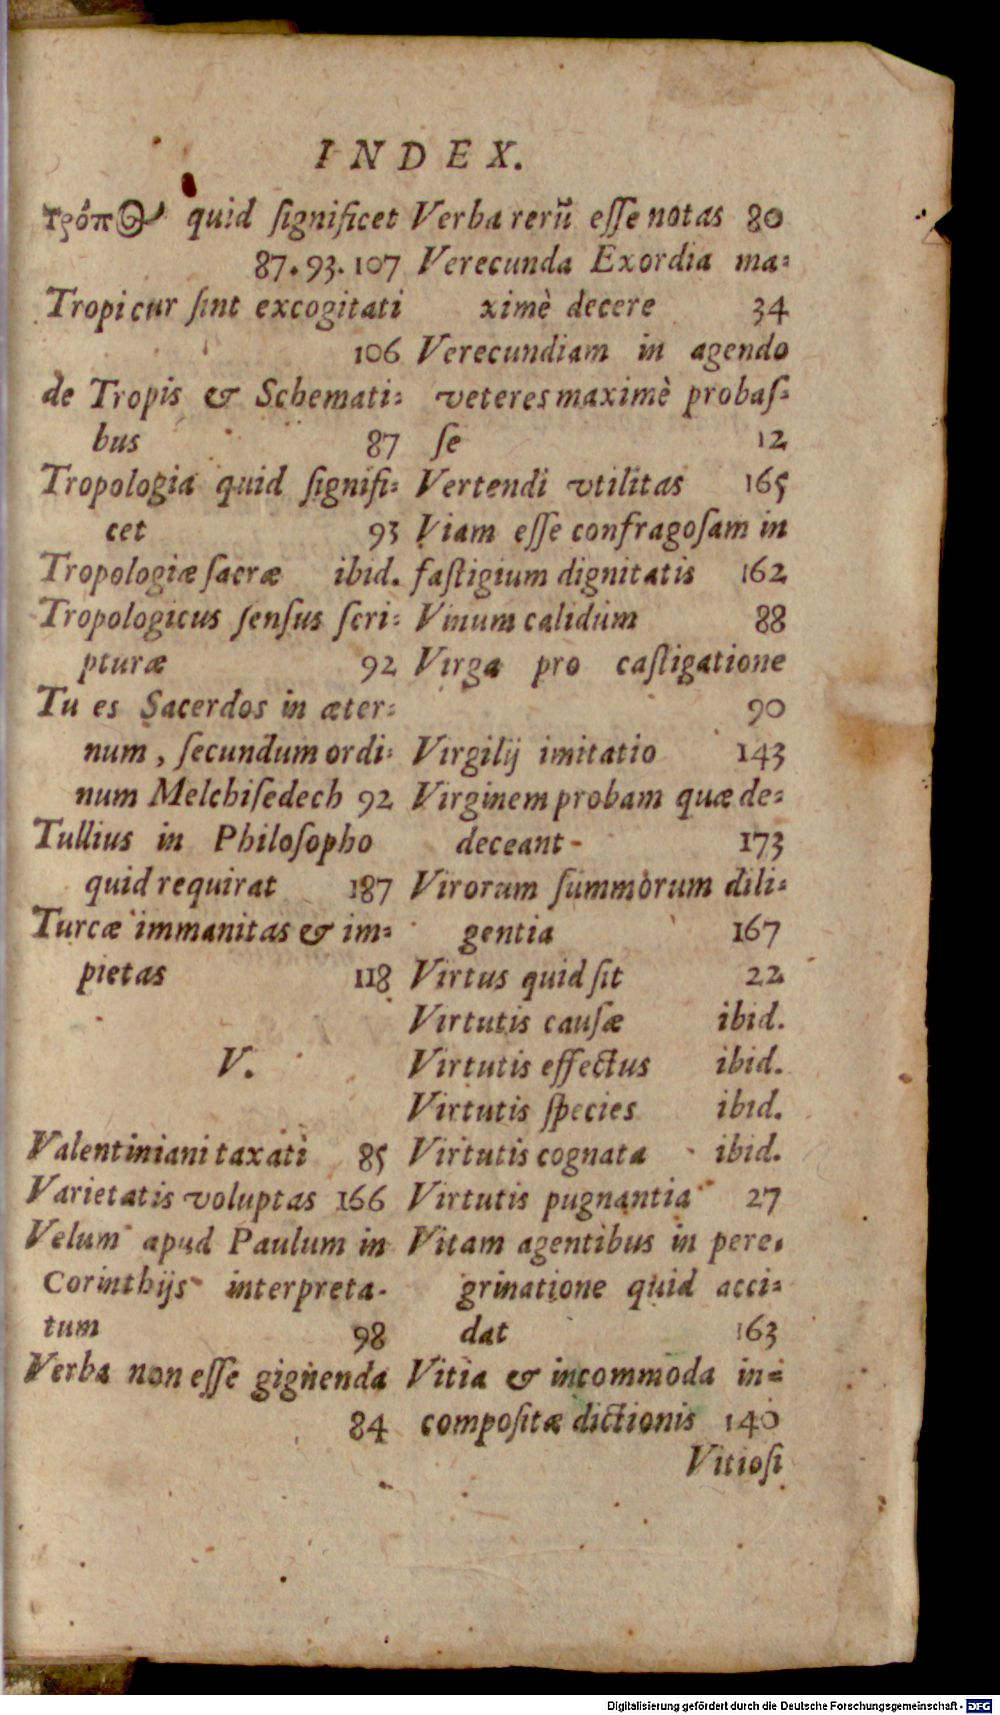 INDEX.
τρόπος quid ſignificet
87. 93. 107
Tropi cur ſint excogitati
106
de Tropis & Schemati-
bus 87
Tropologia quid ſignifi-
cet 93
Tropologiæ ſacræ ibid.
Tropologicus ſenſus ſcri-
pturæ 92
Tu es Sacerdos in æter-
num, ſecundum ordi-
num Melchiſedech 92
Tullius in Philoſopho
quid requirat 187
Turcæ immanitas & im-
pietas 118
V.
Valentiniani taxati 85
Varietatis voluptas 166
Velum apud Paulum in
Corinthijs interpreta-
tum 98
Verba non eſſe gignenda
84
Verba rerū eſſe notas 80
Verecunda Exordia ma-
ximè decere 34
Verecundiam in agendo
veteres maximè probaſ-
ſe 12
Vertendi vtilitas 165
Viam eſſe confragoſam in
faſtigium dignitatis 162
Vinum calidum 88
Virga pro caſtigatione
90
Virgilij imitatio 143
Virginem probam quæ de-
deceant 173
Virorum ſummorum dili-
gentia 167
Virtus quid ſit 22
Virtutis cauſæ ibid.
Virtutis effectus ibid.
Virtutis ſpecies ibid.
Virtutis cognata ibid.
Virtutis pugnantia 27
Vitam agentibus in pere-
grinatione quid acci-
dat 163
Vitia & incommoda in-
compoſitæ dictionis 140
Vitioſi
Digitalisierung gefördert durch die Deutsche Forschungsgemeinschaft - DFG